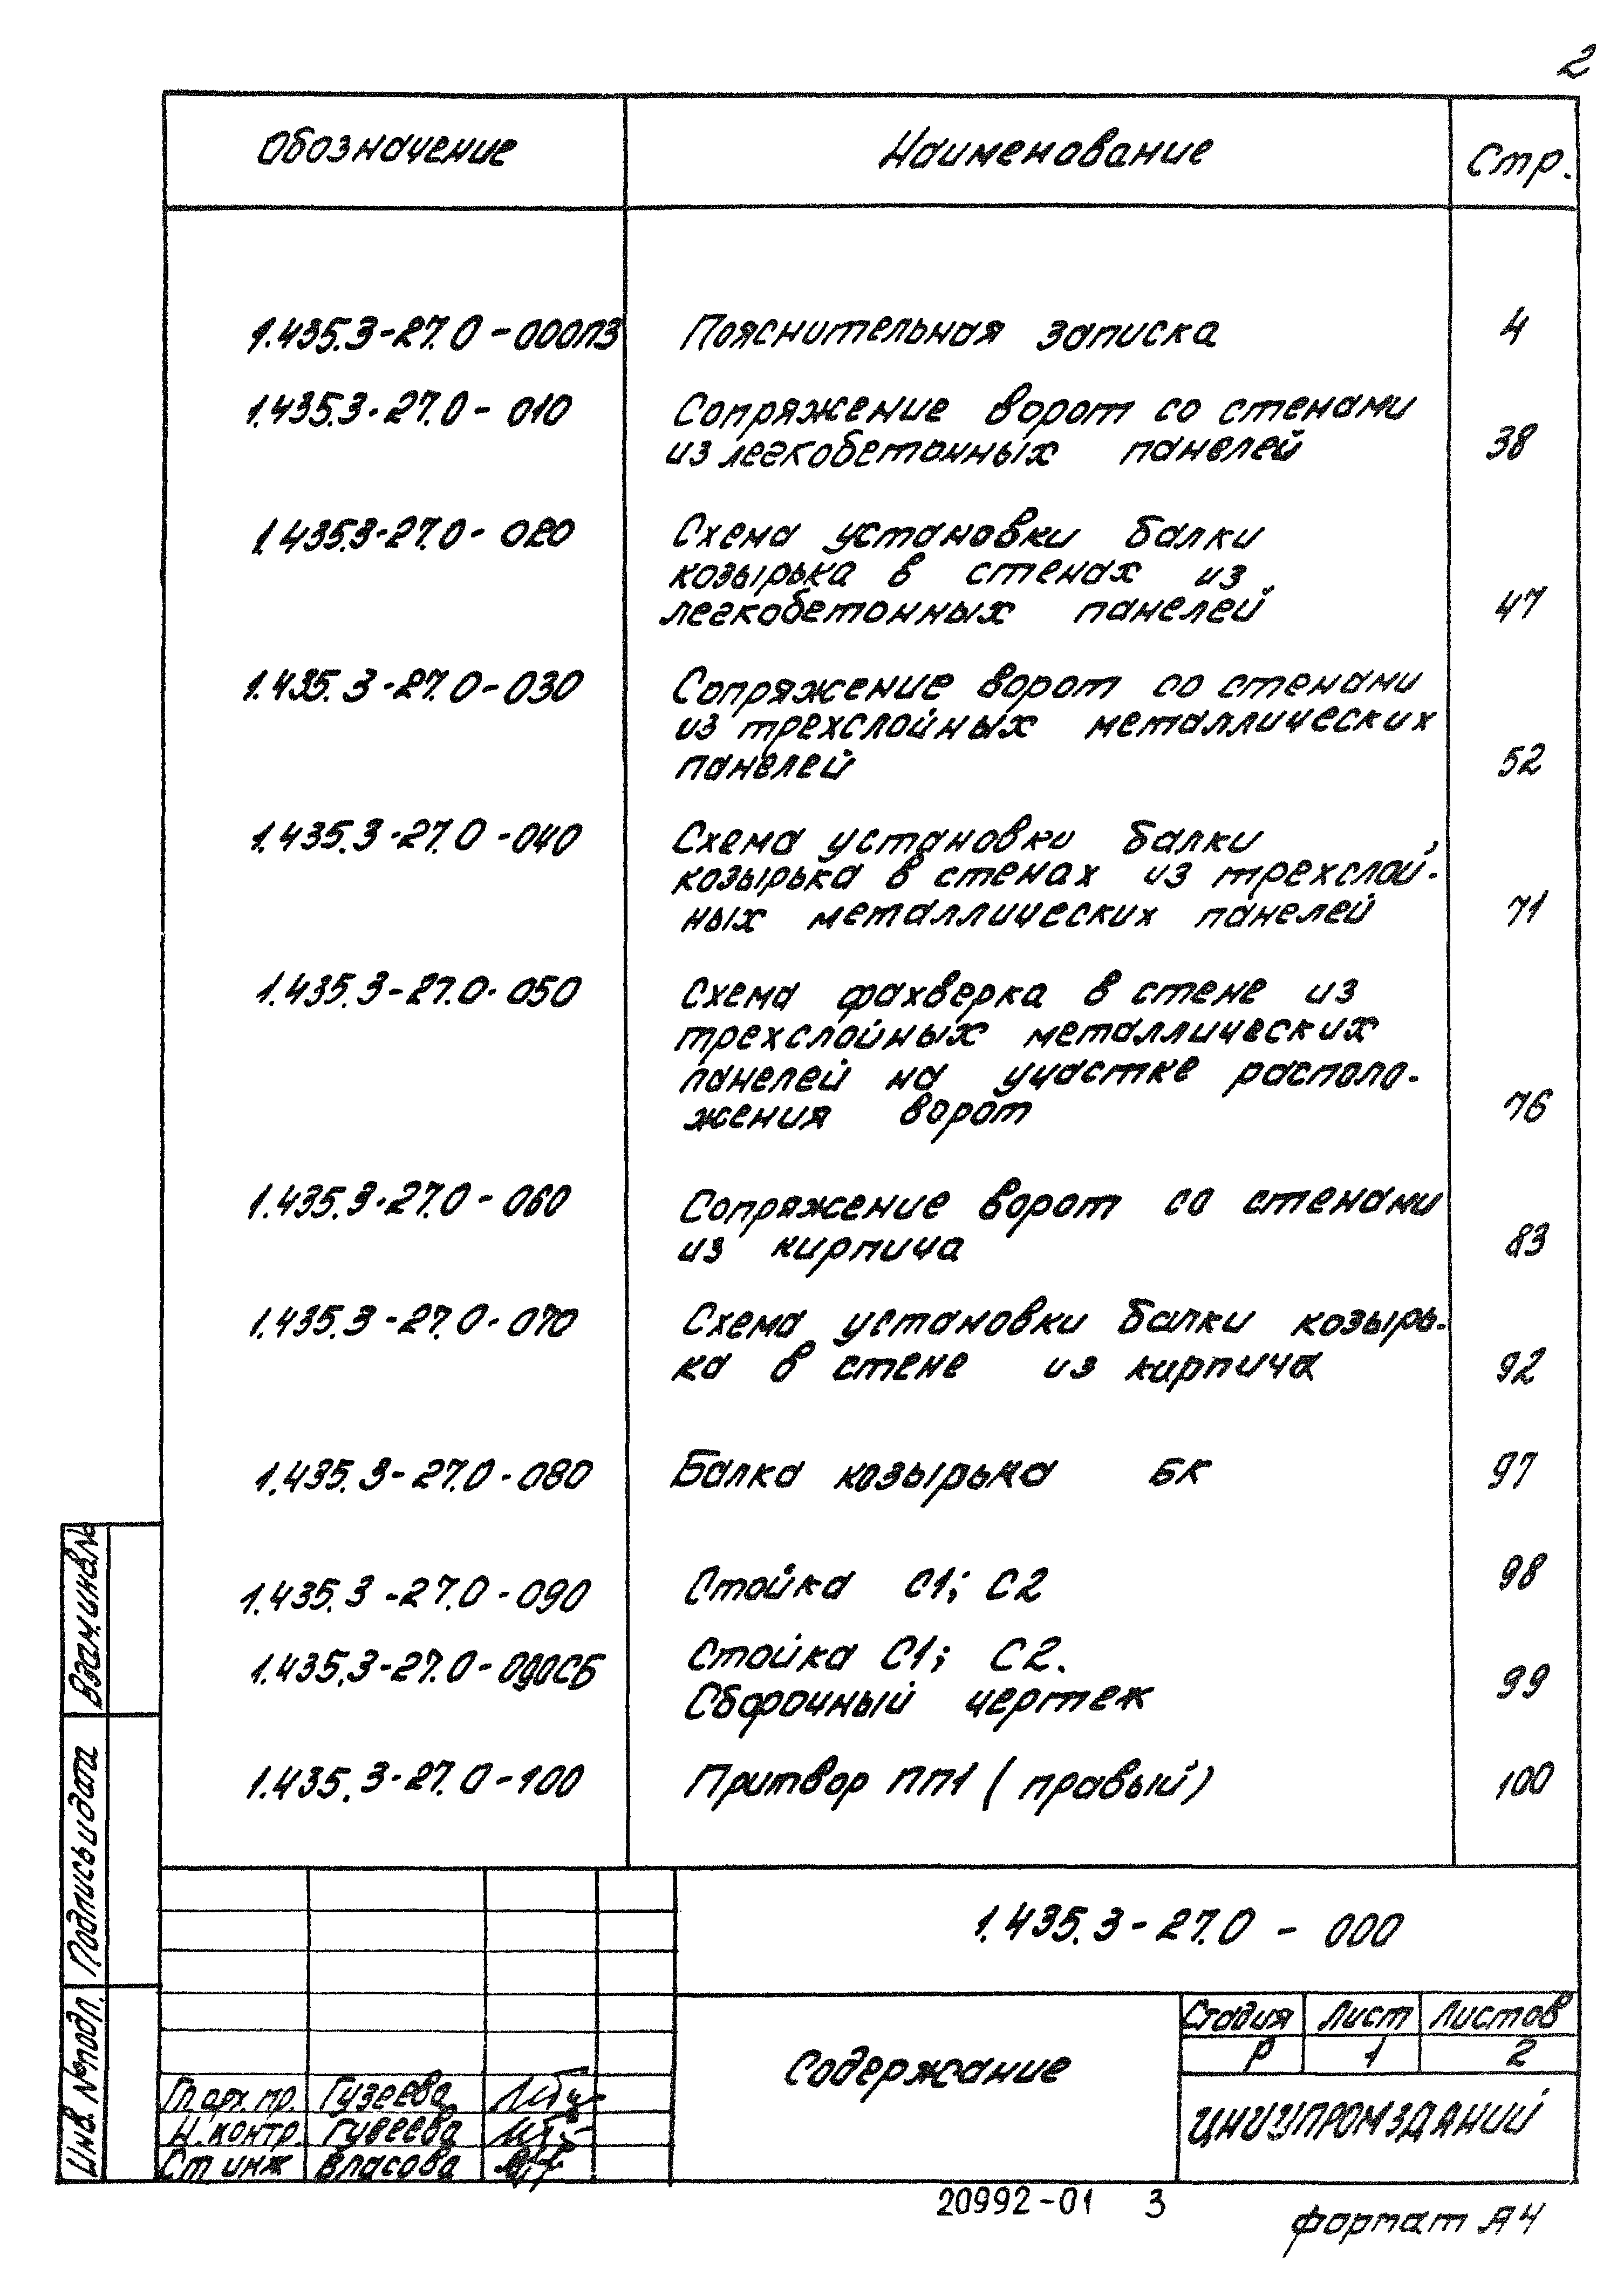 2
Обозначение Наименование Стр.
1.435.3-27.0-000ПЗ Пояснительная записка 4
1.435.3-27.0-010 Сопряжение ворот со стенами
из легкобетонных панелей 38
1.435.3-27.0-020 Схема установки балки
козырька в стенах из
легкобетонных панелей 47
1.435.3-27.0-030 Сопряжение ворот со стенами
из трехслойных металлических
панелей 52
1.435.3-27.0-040 Схема установки балки
козырька в стенах из трехслой-
ных металлических панелей 71
1.435.3-27.0-050 Схема фахверка в стене из
трехслойных металлических
панелей на участке располо-
жения ворот 76
1.435.3-27.0-060 Сопряжение ворот со стенами
из кирпича 83
1.435.3-27.0-070 Схема установки балки козырь-
ка в стене из кирпича 92
1.435.3-27.0-080 Балка козырька БК 97
1.435.3-27.0-090 Стойка С1; С2 98
1.435.3-27.0-090СБ Стойка С1; С2.
Сборочный чертеж 99
1.435.3-27.0-100 Притвор ПП1 (правый) 100
Взам.инв.№
Подпись и дата
Инв.№подл.
1.435.3-27.0-000
Содержание
Стадия Лист Листов
Р 1 2
ЦНИИПРОМЗДАНИЙ
Гл.арх.пр. Гузеева
Н.контр. Гузеева
Ст инж Власова
20992-01 3
формат А4